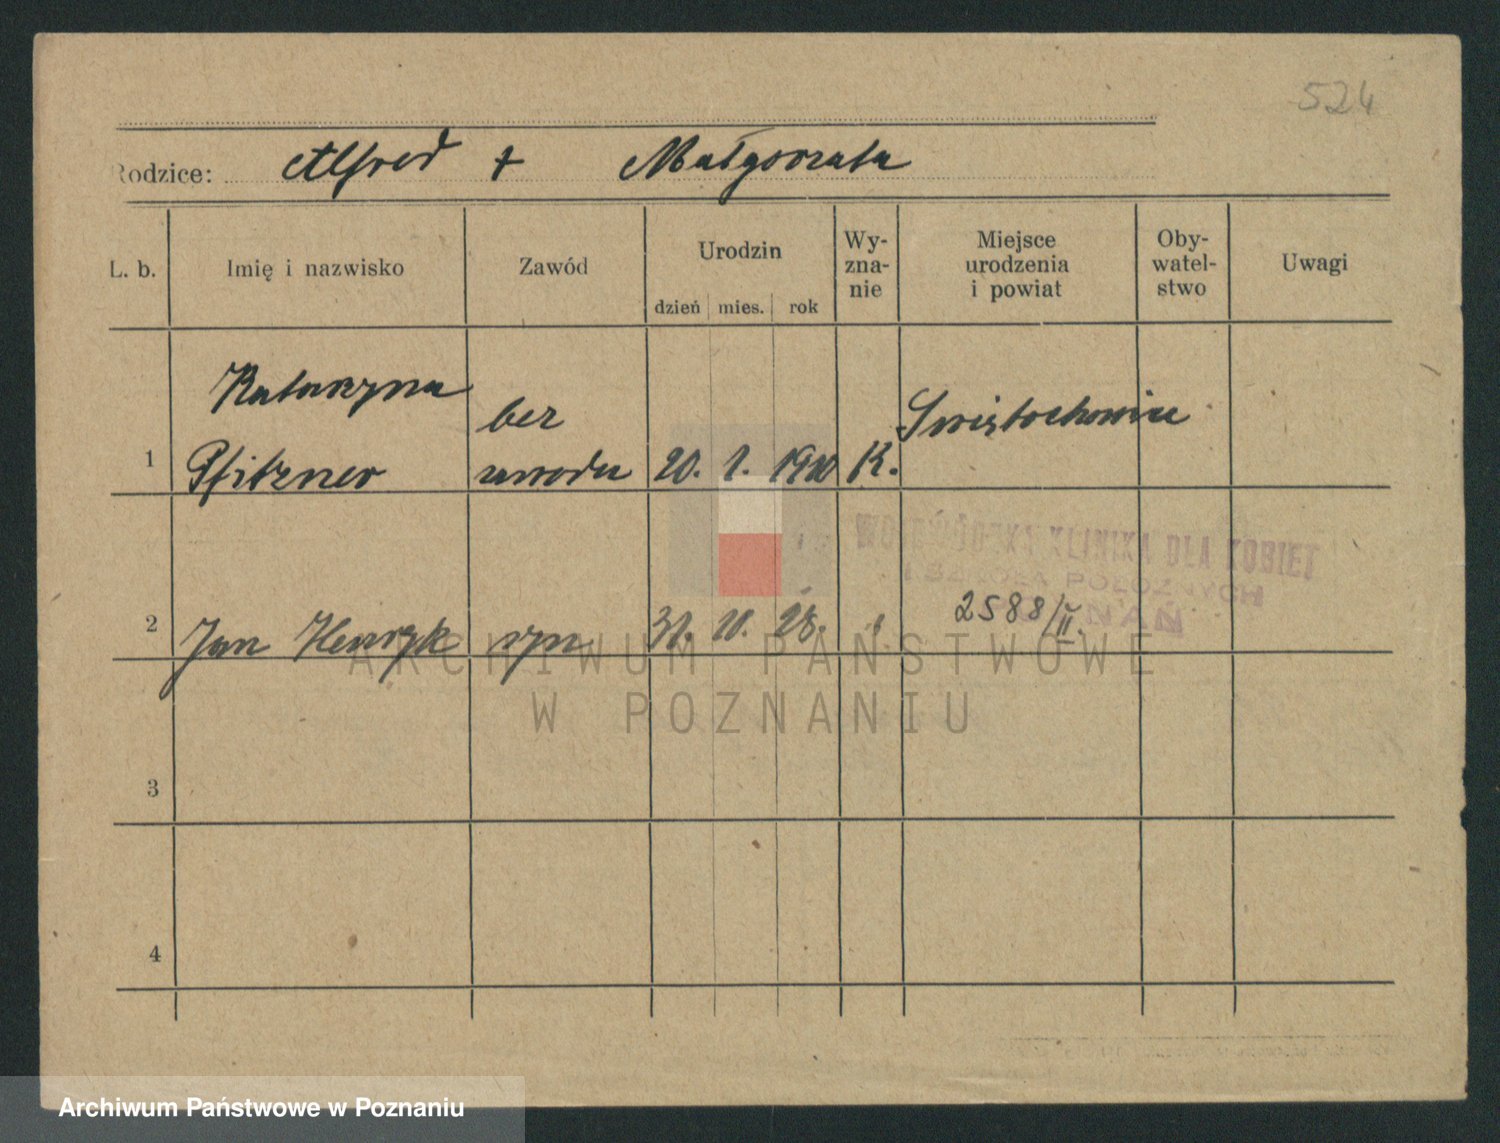 524
Rodzice: Alfred + Małgorzata
L. b. Imię i nazwisko Zawód Urodzin dzień mies. rok Wy-zna-nie Miejsce urodzenia i powiat Oby-watel-stwo Uwagi
Katarzyna
bez
Świętochowice
1 Pfitzner zawodu 20. 1. 1910 K.
WOJEWÓDZKA KLINIKA DLA KOBIET
I SZKOŁA POŁOŻNYCH
POZNAŃ
2 Jan Henryk syn 31. 10. 28. 2588/II.
ARCHIWUM PAŃSTWOWE
W POZNANIU
3
4
Archiwum Państwowe w Poznaniu